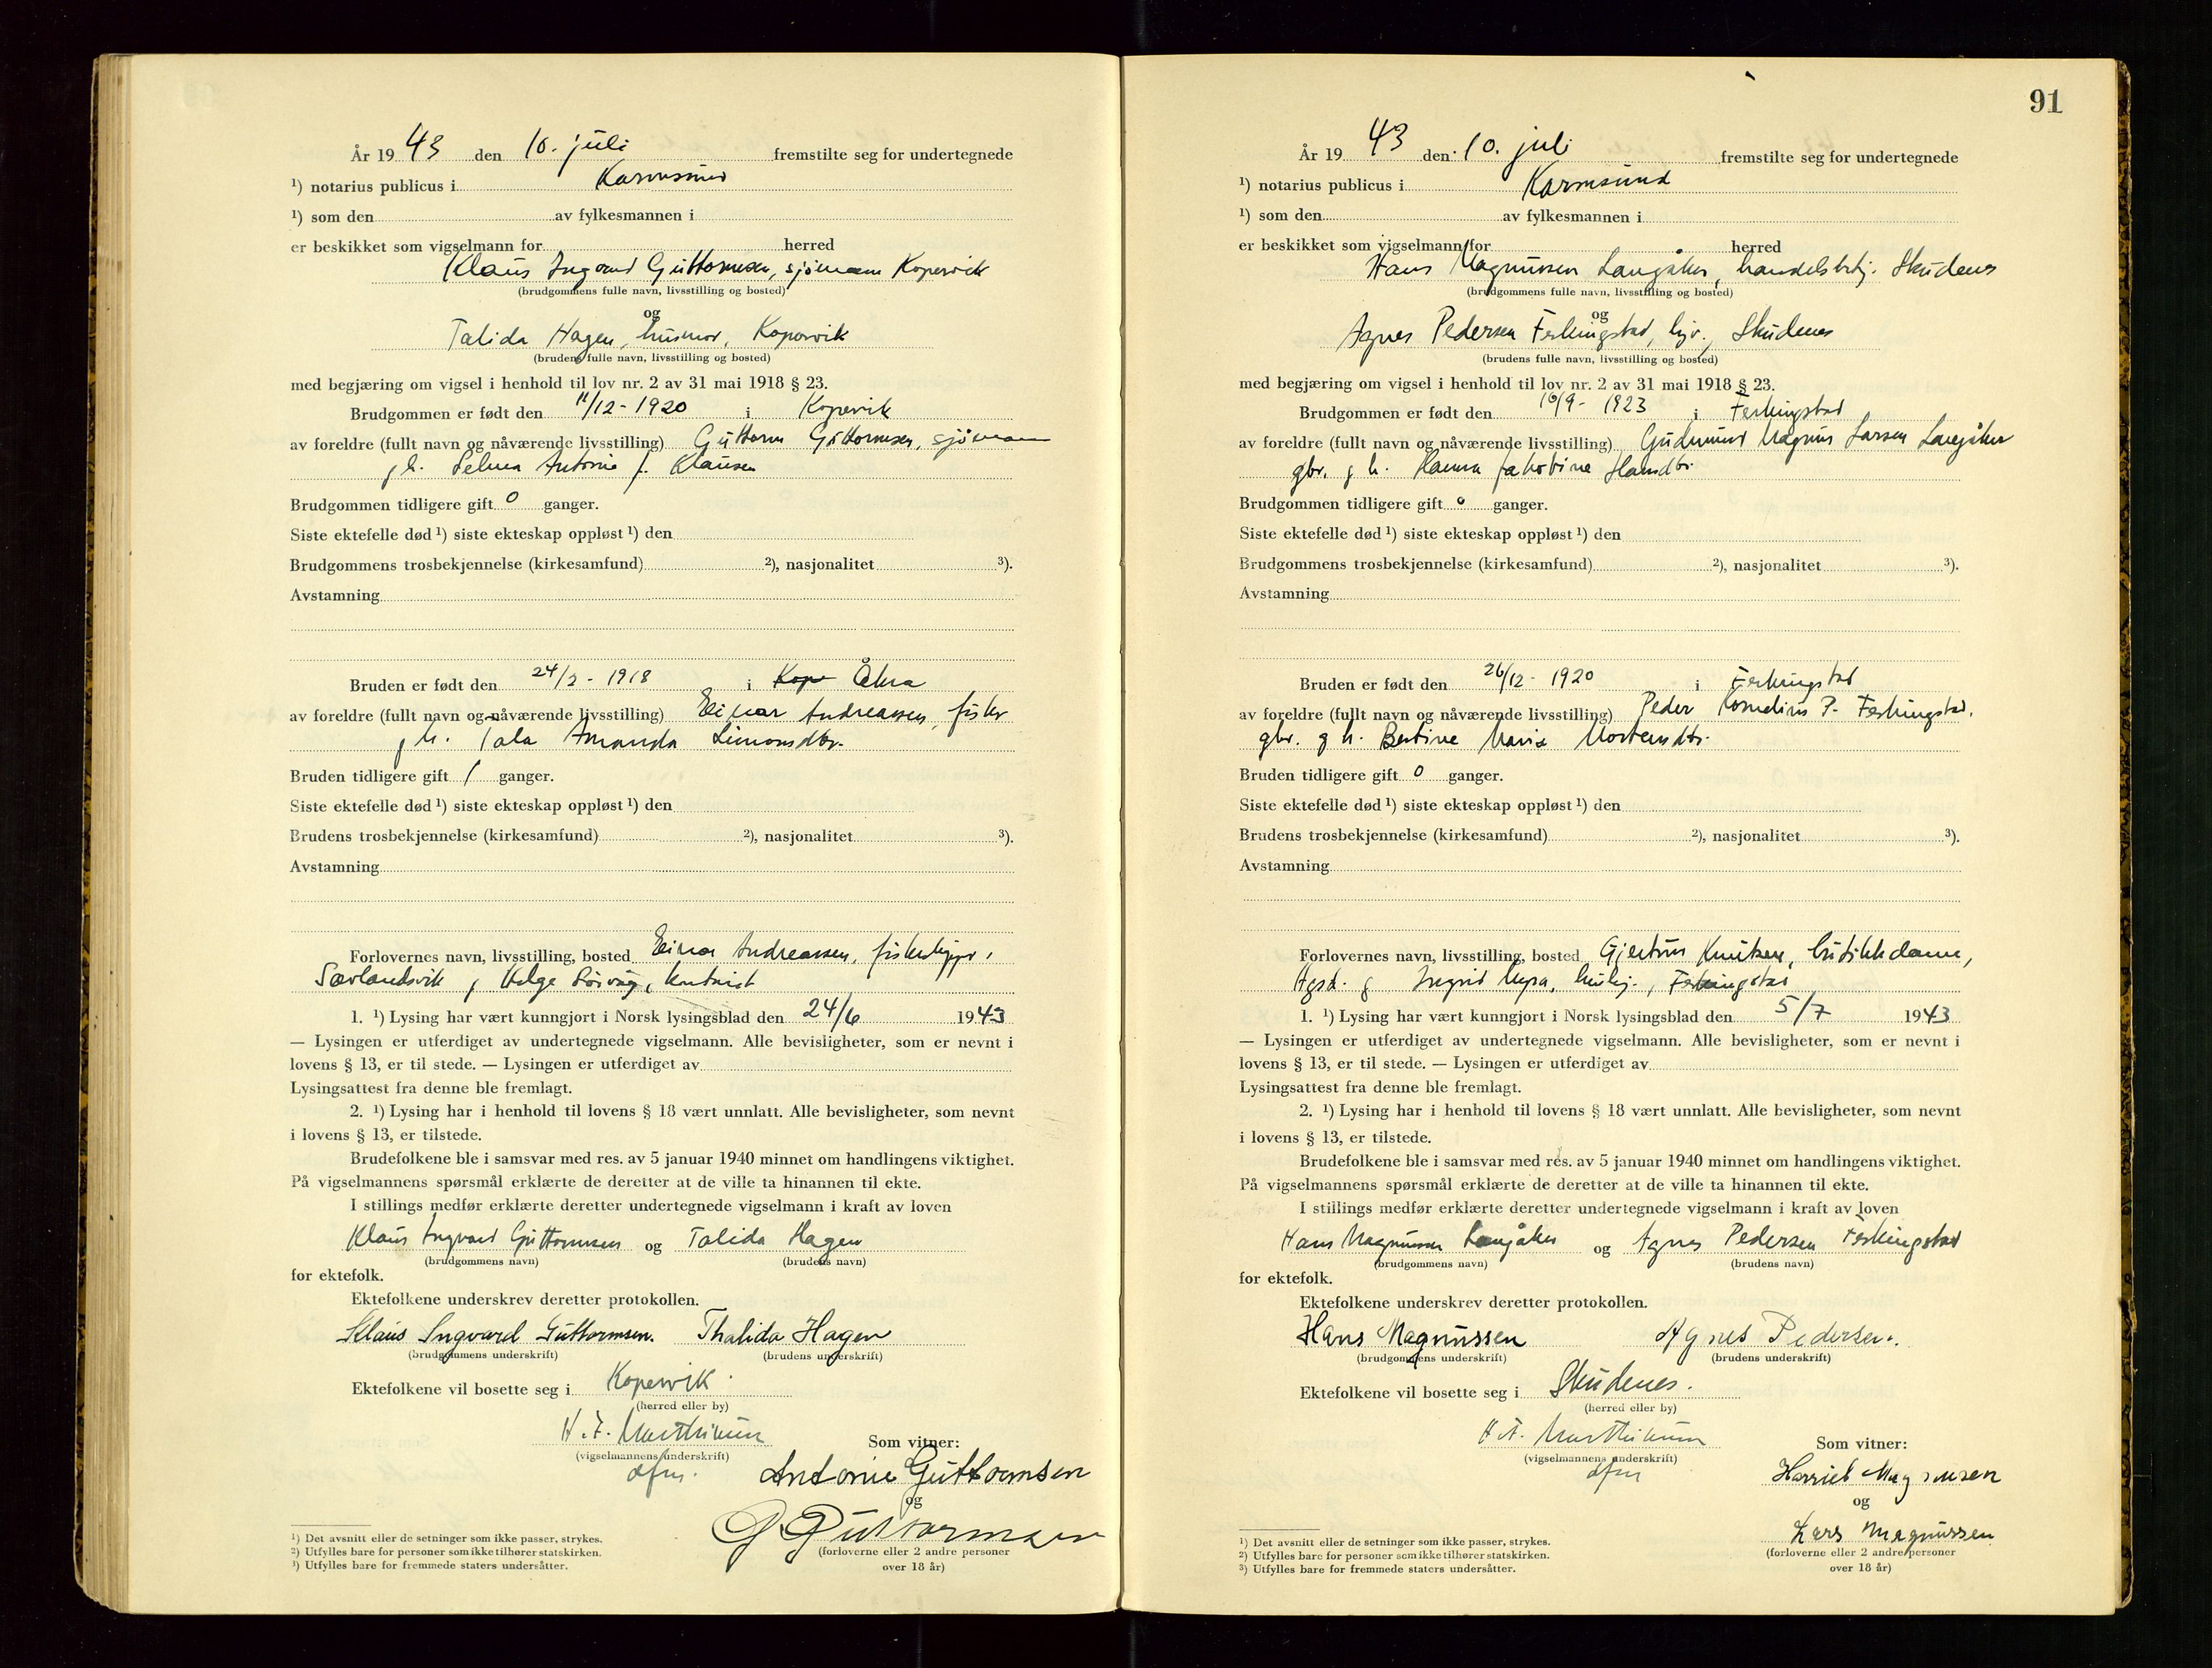 År 19 43 den 10. juli fremstilte seg for undertegnede
¹) notarius publicus i Karmsund
¹) som den av fylkesmannen i
er beskikket som vigselmann for herred
Klaus Ingvard Guttormsen, sjømann Kopervik
(brudgommens fulle navn, livsstilling og bosted)
og
Talida Hagen, husmor, Kopervik
(brudens fulle navn, livsstilling og bosted)
med begjæring om vigsel i henhold til lov nr. 2 av 31 mai 1918 § 23.
Brudgommen er født den 11/12 - 1920 i Kopervik
av foreldre (fullt navn og nåværende livsstilling) Guttorm Guttormsen, sjømann
g h. Selma Antonie f. Klausen
Brudgommen tidligere gift 0 ganger.
Siste ektefelle død ¹) siste ekteskap oppløst ¹) den
Brudgommens trosbekjennelse (kirkesamfund) ²), nasjonalitet ³).
Avstamning
Bruden er født den 24/2 - 1918 i Kope Åkra
av foreldre (fullt navn og nåværende livsstilling) Einar Andreassen, fisker
g h. Tala Amanda Simonsdtr.
Bruden tidligere gift 1 ganger.
Siste ektefelle død ¹) siste ekteskap oppløst ¹) den
Brudens trosbekjennelse (kirkesamfund) ²), nasjonalitet ³).
Avstamning
Forlovernes navn, livsstilling, bosted Einar Andreassen,
Sævlandsvik g Helge
1. ¹) Lysing har vært kunngjort i Norsk lysingsblad den 24/6 1943
— Lysingen er utferdiget av undertegnede vigselmann. Alle bevisligheter, som er nevnt i
lovens § 13, er til stede. — Lysingen er utferdiget av
Lysingsattest fra denne ble fremlagt.
2. ¹) Lysing har i henhold til lovens § 18 vært unnlatt. Alle bevisligheter, som nevnt
i lovens § 13, er tilstede.
Brudefolkene ble i samsvar med res. av 5 januar 1940 minnet om handlingens viktighet.
På vigselmannens spørsmål erklærte de deretter at de ville ta hinannen til ekte.
I stillings medfør erklærte deretter undertegnede vigselmann i kraft av loven
Klaus Ingvard Guttormsen og Talida Hagen
(brudgommens navn) (brudens navn)
for ektefolk.
Ektefolkene underskrev deretter protokollen.
Klaus Ingvard Guttormsen. Thalida Hagen
(brudgommens underskrift) (brudens underskrift)
Ektefolkene vil bosette seg i Kopervik.
(herred eller by)
(vigselmannens underskrift)
Som vitner:
Antonie Guttormsen
og
G Guttormsen
(forloverne eller 2 andre personer
over 18 år)
¹) Det avsnitt eller de setninger som ikke passer, strykes.
²) Utfylles bare for personer som ikke tilhører statskirken.
³) Utfylles bare for fremmede staters undersåtter.
91
År 19 43 den 10. juli fremstilte seg for undertegnede
¹) notarius publicus i Karmsund
¹) som den av fylkesmannen i
er beskikket som vigselmann for herred
Hans Magnussen Langåker, handelsbetj. Skudenes
(brudgommens fulle navn, livsstilling og bosted)
og
Agnes Pedersen Ferkingstad, Skudenes
(brudens fulle navn, livsstilling og bosted)
med begjæring om vigsel i henhold til lov nr. 2 av 31 mai 1918 § 23.
Brudgommen er født den 16/9 - 1923 i Ferkingstad
av foreldre (fullt navn og nåværende livsstilling) Gudmund Magnus Larsen Langåker
gbr. g h. Hanna Jakobine Hansdtr.
Brudgommen tidligere gift 0 ganger.
Siste ektefelle død ¹) siste ekteskap oppløst ¹) den
Brudgommens trosbekjennelse (kirkesamfund) ²), nasjonalitet ³).
Avstamning
Bruden er født den 26/12 - 1920 i Ferkingstad
av foreldre (fullt navn og nåværende livsstilling) Peder Kornelius P. Ferkingstad,
gbr. g h. Bertine Maria Mortensdtr.
Bruden tidligere gift 0 ganger.
Siste ektefelle død ¹) siste ekteskap oppløst ¹) den
Brudens trosbekjennelse (kirkesamfund) ²), nasjonalitet ³).
Avstamning
Forlovernes navn, livsstilling, bosted Gjertrus Knutsen, butikkdame,
g Ingrid Ferkingstad
1. ¹) Lysing har vært kunngjort i Norsk lysingsblad den 5/7 1943
— Lysingen er utferdiget av undertegnede vigselmann. Alle bevisligheter, som er nevnt i
lovens § 13, er til stede. — Lysingen er utferdiget av
Lysingsattest fra denne ble fremlagt.
2. ¹) Lysing har i henhold til lovens § 18 vært unnlatt. Alle bevisligheter, som nevnt
i lovens § 13, er tilstede.
Brudefolkene ble i samsvar med res. av 5 januar 1940 minnet om handlingens viktighet.
På vigselmannens spørsmål erklærte de deretter at de ville ta hinannen til ekte.
I stillings medfør erklærte deretter undertegnede vigselmann i kraft av loven
Hans Magnussen Langåker og Agnes Pedersen Ferkingstad
(brudgommens navn) (brudens navn)
for ektefolk.
Ektefolkene underskrev deretter protokollen.
Hans Magnussen Agnes Pedersen.
(brudgommens underskrift) (brudens underskrift)
Ektefolkene vil bosette seg i Skudenes.
(herred eller by)
(vigselmannens underskrift)
Som vitner:
Harriet Magnussen
og
Lars Magnussen
(forloverne eller 2 andre personer
over 18 år)
¹) Det avsnitt eller de setninger som ikke passer, strykes.
²) Utfylles bare for personer som ikke tilhører statskirken.
³) Utfylles bare for fremmede staters undersåtter.